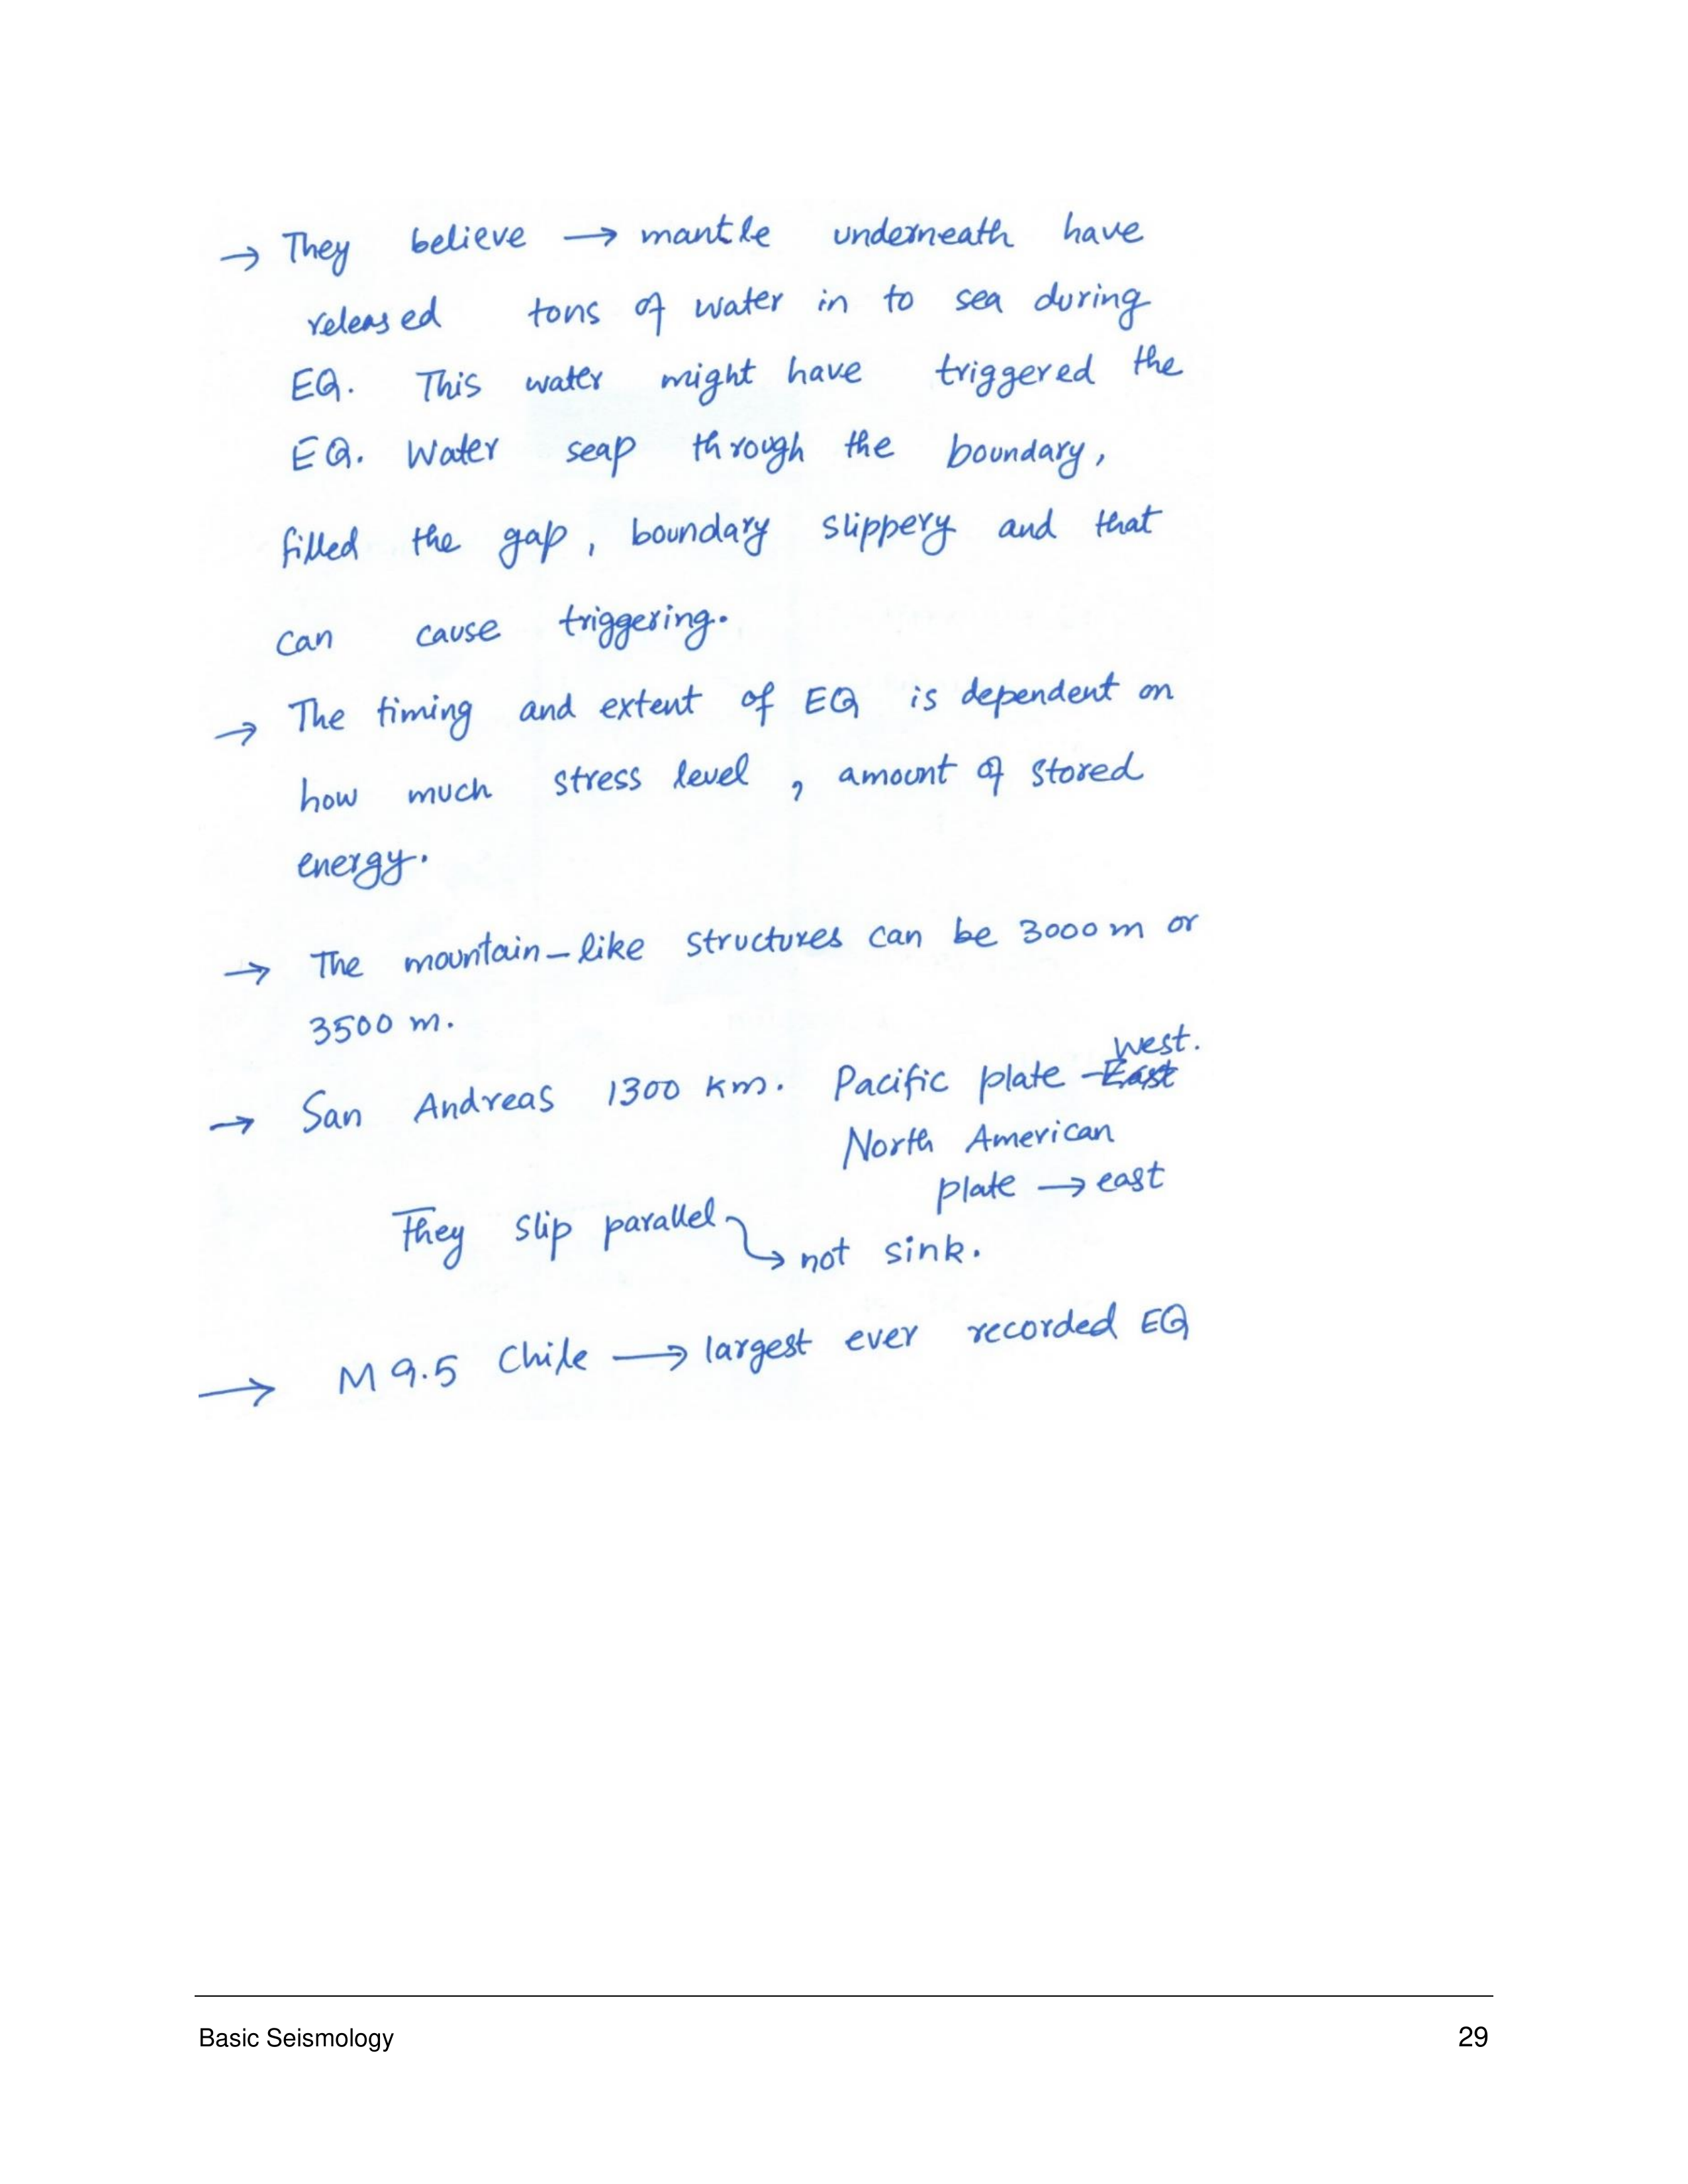 → They believe → mantle underneath have
released tons of water in to sea during
EQ. This water might have triggered the
EQ. Water seap through the boundary,
filled the gap, boundary slippery and that
can cause triggering.
→ The timing and extent of EQ is dependent on
how much stress level, amount of stored
energy.
→ The mountain-like structures can be 3000 m or
3500 m.
West.
→ San Andreas 1300 km. Pacific plate - East
North American
plate → east
They slip parallel
→ not sink.
→ M 9.5 Chile → largest ever recorded EQ
Basic Seismology 29